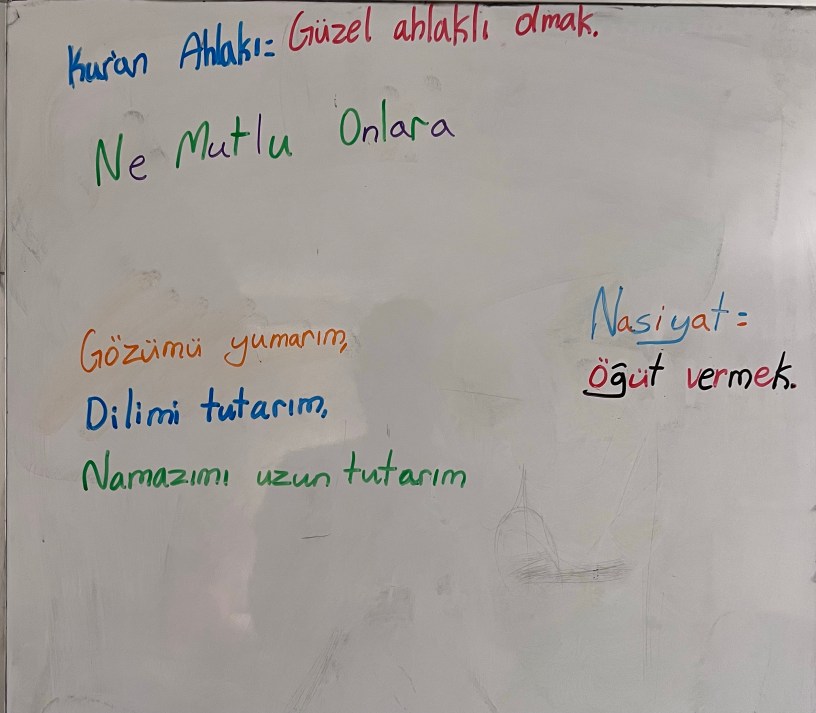 Kur'an Ahlakı= Güzel ahlaklı olmak.
Ne Mutlu Onlara
Gözümü yumarım,
Dilimi tutarım,
Namazımı uzun tutarım
Nasiyat=
Öğüt vermek.